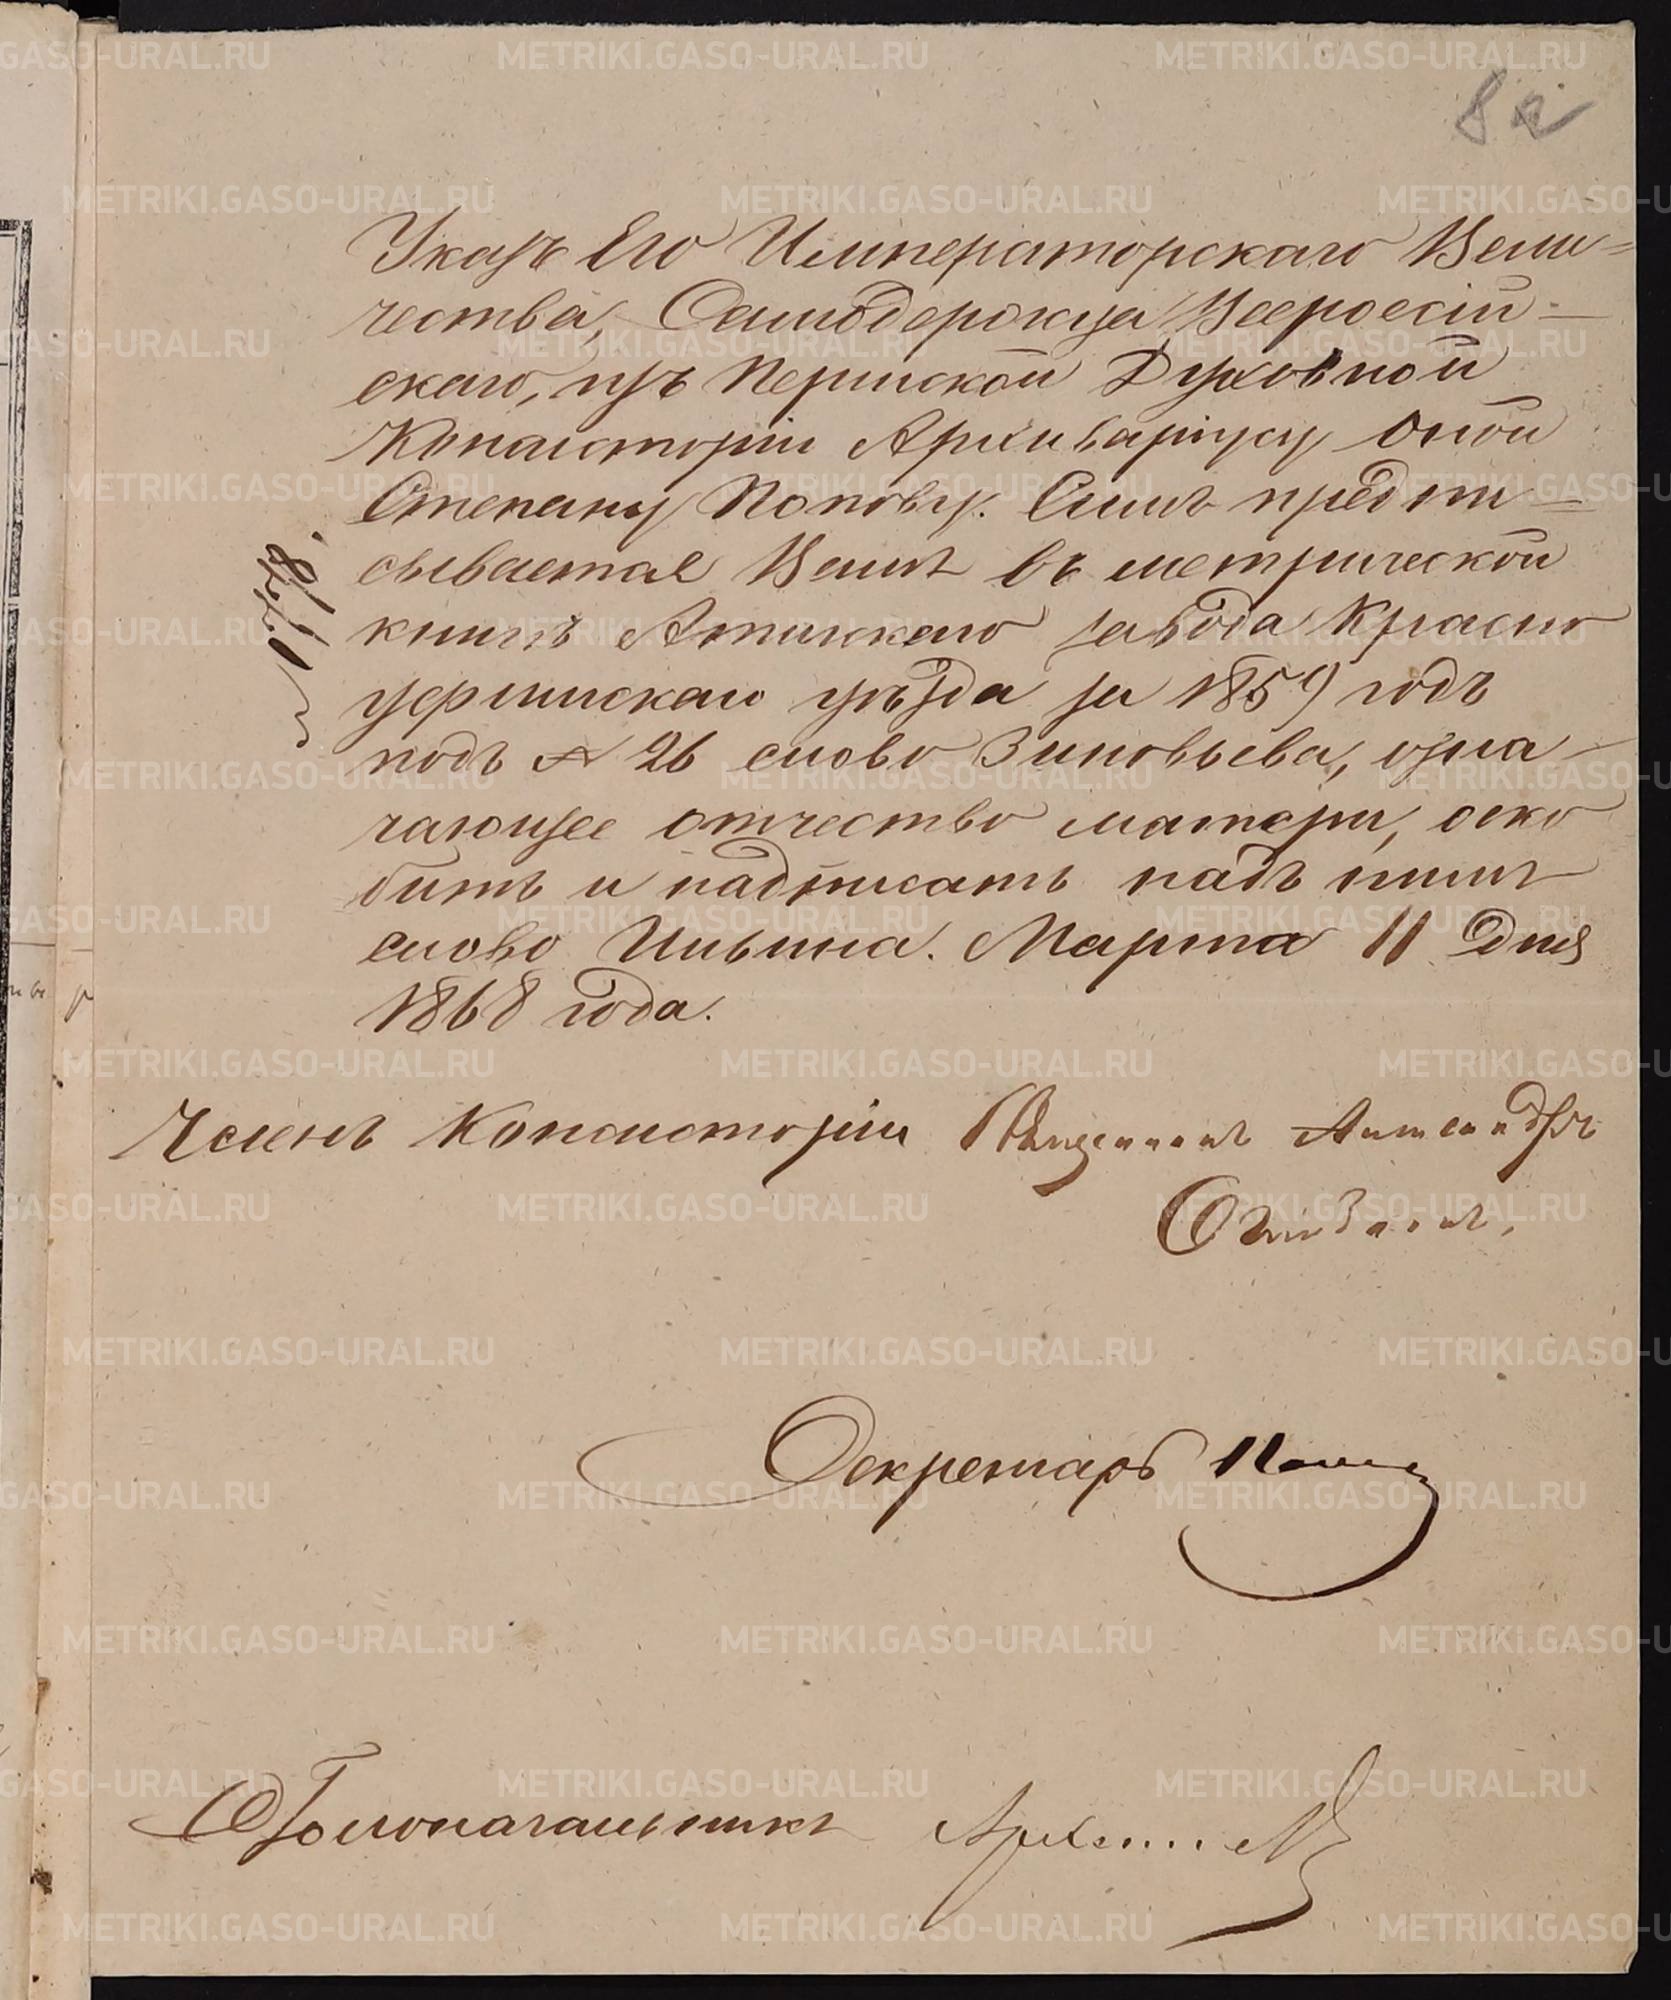 8а
Указъ Его Императорскаго Вели=
чества, Самодержца Всероссій-
скаго, изъ Пермской Духовной
Консисторіи Архиваріусу оной
Степану Попову. Симъ предпи=
сывается Вамъ въ метрической
книгѣ Атигскаго завода Красно
уфимскаго уѣзда за 1859 годъ
подъ № 26 слово Зиновьева, озна-
чающее отчество матери, оско
бить и надписать надъ нимъ
слово Ильина. Марта 11 дня
1868 года.
Членъ Консисторіи Священникъ Александръ
Секретарь Попов
Столоначальникъ
METRIKI.GASO-URAL.RU